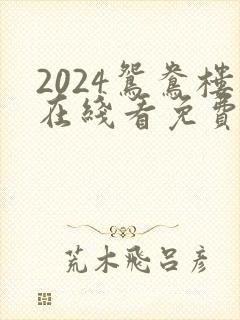 2024鸳鸯楼
在线看免費
荒木飛呂彦